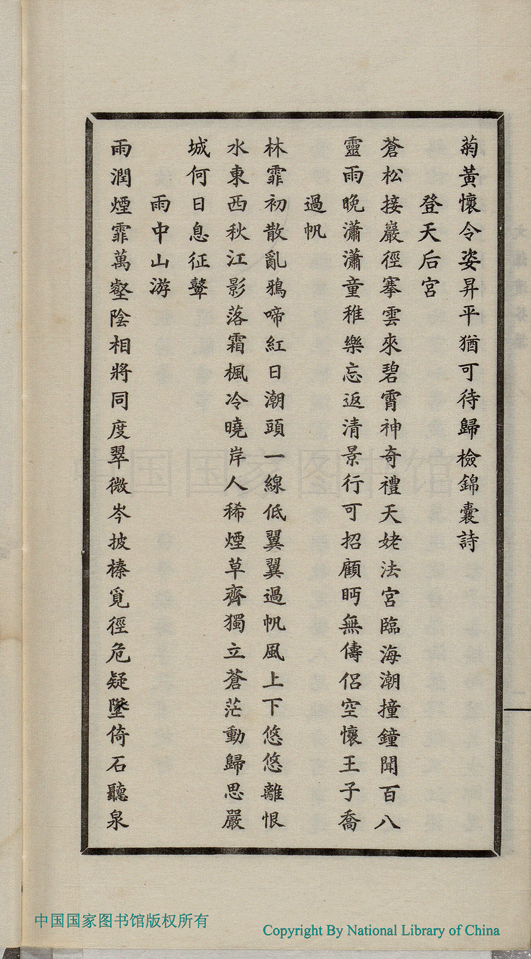 菊黃懷令姿昇平猶可待歸檢錦囊詩
登天后宮
蒼松接巖徑搴雲來碧霄神奇禮天姥法宮臨海潮撞鐘聞百八
靈雨晚瀟瀟童稚樂忘返清景行可招顧眄無儔侶空懷王子喬
過帆
林霏初散亂鴉啼紅日潮頭一線低翼翼過帆風上下悠悠離恨
水東西秋江影落霜楓冷曉岸人稀煙草齊獨立蒼茫動歸思嚴
城何日息征鼙
雨中山游
雨潤煙霏萬壑陰相將同度翠微岑披榛覓徑危疑墜倚石聽泉
中国国家图书馆
中国国家图书馆版权所有
Copyright By National Library of China